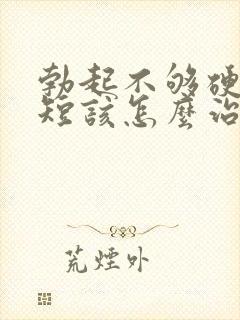 勃起不够硬
短該怎麼治
荒煙外